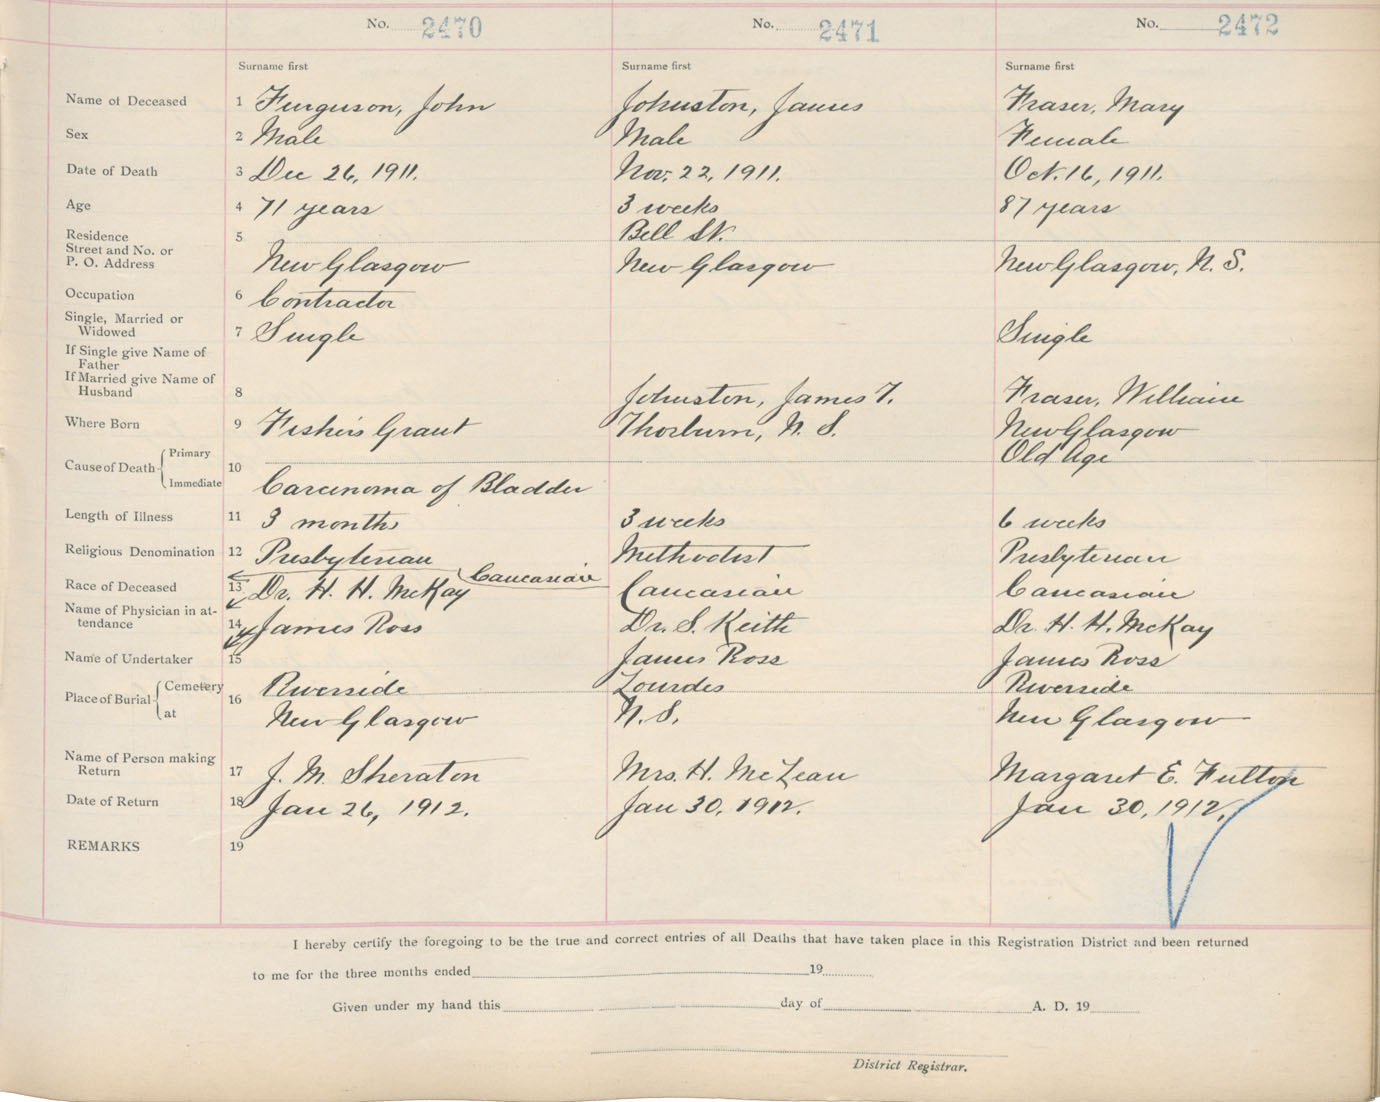 No. 2470 No. 2471 No. 2472
Surname first Surname first Surname first
Name of Deceased 1 Furguson, John Johnston, James Fraser, Mary
Sex 2 Male Male Female
Date of Death 3 Dec 26, 1911. Nov. 22, 1911. Oct. 16, 1911.
Age 4 71 years 3 weeks 87 years
Residence 5 Bell St.
Street and No. or
P. O. Address New Glasgow New Glasgow New Glasgow, N. S.
Occupation 6 Contractor
Single, Married or
Widowed 7 Single Single
If Single give Name of
Father
If Married give Name of
Husband 8 Johnston, James T. Fraser, William
Where Born 9 Fishers Grant Thorburn, N. S. New Glasgow
Cause of Death Primary 10 Old Age
Immediate Carcinoma of Bladder
Length of Illness 11 3 months 3 weeks 6 weeks
Religious Denomination 12 Presbyterian Methodist Presbyterian
Caucasian
Race of Deceased 13 Dr. H. H. McKay Caucasian Caucasian
Name of Physician in at-
tendance 14 James Ross Dr. S. Keith Dr. H. H. McKay
Name of Undertaker 15 James Ross James Ross
Place of Burial Cemetery 16 Riverside Lourdes Riverside
at New Glasgow N. S. New Glasgow
Name of Person making
Return 17 J. M. Sheraton Mrs. H. McLean Margaret E. Fulton
Date of Return 18 Jan 26, 1912. Jan 30, 1912. Jan 30, 1912.
REMARKS 19
I hereby certify the foregoing to be the true and correct entries of all Deaths that have taken place in this Registration District and been returned
to me for the three months ended 19
Given under my hand this day of A. D. 19
District Registrar.